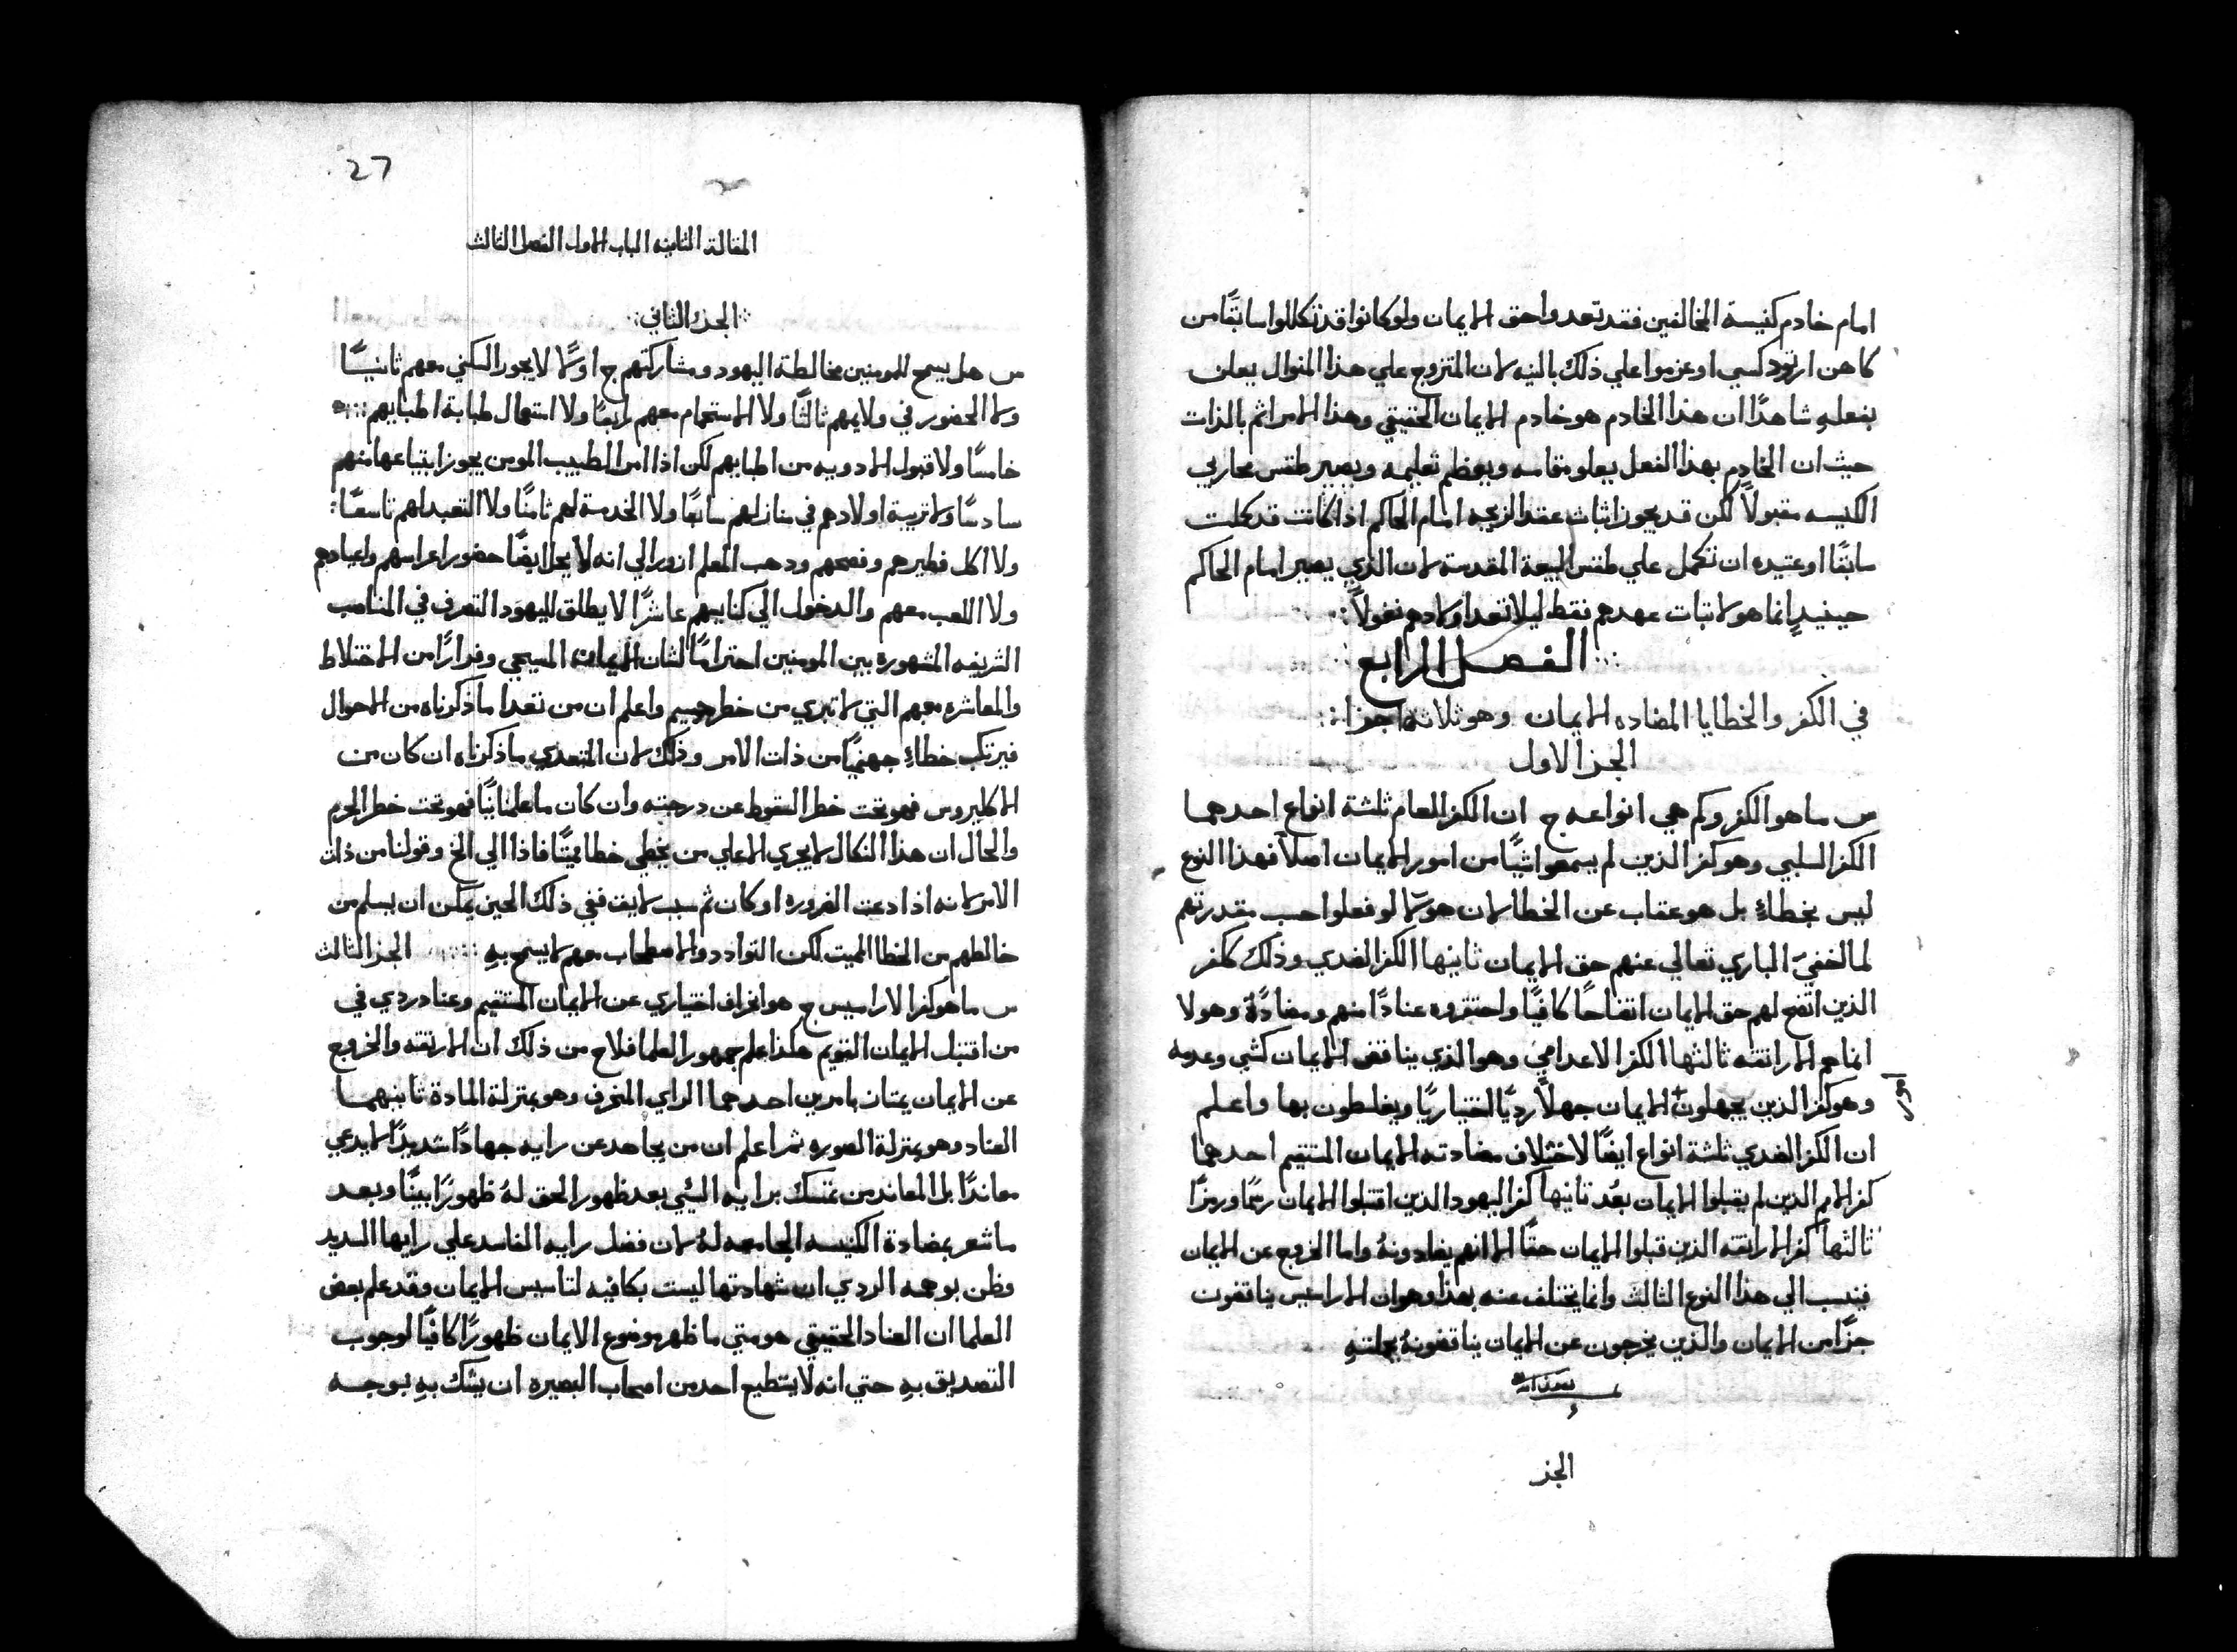 امام خادم كنيسة المخالفين فقد تعدوا حق الايمان ولو كانوا قد تكللوا سابقًا من
كاهن ارتودكسي او عزموا علي ذلك بالنيه لان المتزوج علي هذا المنوال يعلن
بفعلهِ شاهدًا ان هذا الخادم هو خادم الايمان الحقيقي وهذا الامر اثم بالذات
حيث ان الخادم بهذا الفعل يعلو مقامه ويعظم تعليمه ويصير طقس محاربي
الكنيسه مقبولاً لكن قد يجوز اثبات عقد الزيجه امام الحاكم اذا كانت قد كملت
سابقًا او عتيده ان تكمل علي طقس البيعة المقدسة لان الذي يصير امام الحاكم
حينيدٍ انما هو لاتبات عهدهم فقط ليلا تعد اولادهم نغولاً
الفصل الرابع
في الكفر والخطايا المضاده الايمان وهو ثلاثة اجزا
الجز الاول
س ما هو الكفر وكم هي انواعه ج ان الكفر العام ثلثة انواع احدهما
الكفر السلبي وهو كفر الذين لم يسمعوا شيًا من امور الايمان اصلاً فهذا النوع
ليس بخطاءٍ بل هو عقاب عن الخطا لان هولا لو فعلوا حسب مقدرتهم
لما اخفيَ الباري تعالي عنهم حق الايمان ثانيها الكفر الضدي وذلك ككفر
الذين اتضح لهم حق الايمان اتضاحًا كافيًا واحتقروه عنادًا منهم ومضادًة وهولا
انما هم الاراتقه ثالثها الكفر الاعدامي وهو الذي يناقض الايمان كشي وعدمه
وهو كفر الذين يجهلون الايمان جهلاً رديًا اختياريًا ويغلطون بها واعلم
امور
ان الكفر الضدي ثلثة انواع ايضًا لاختلاف مضادته الايمان المستقيم احدهما
كفر الامم الذين لم يقبلوا الايمان بعُد ثانيها كفر اليهود الذين اقتبلوا الايمان رسمًا ورمزًا
ثالثها كفر الاراتقه الذين قبلوا الايمان حقًا الا انهم يضادونهُ واما الخروج عن الايمان
فينسب الي هذا النوع الثالث وانما يختلف عنه بهذا وهو ان الاراسيس يناقضون
جزًا من الايمان والذين يخرجون عن الايمان يناقضونهُ بجملتهِ
الجز
27
المقالة الثانيه الباب الاول الفصل الثالث
الجزء الثاني
س هل يسمح للمومنين مخالطة اليهود ومشاركتهم ج اولاً لا يجوز السكني معهم ثانيًا
ولا الحضور في ولايمهم ثالثًا ولا الاستحمام معهم رابعًا ولا استعمال طبابة اطبايهم
خامسًا ولا قبول الادويه من اطبايهم لكن اذا امر الطبيب المومن يجوز ابتياعها منهم
سادسًا ولا تربية اولادهم في منازلهم سابعًا ولا الخدمة لهم ثامنًا ولا التعبد لهم تاسعًا
ولا اكل فطيرهم وفصحهم ودهب المعلم ازور الي انه لا يحل ايضًا حضور اعراسهم واعيادهم
ولا اللعب معهم والدخول الي كنايسهم عاشرًا لا يطلق لليهود التصرف في المناصب
الشريفه المشهوره بين المومنين احترامًا لشان الايمان المسيحي وفرارًا من الاختلاط
والمعاشره معهم التي لا تبري من خطر جسيم واعلم ان من تعدا ما ذكرناه من الاحوال
فيرتكب خطاءً جهنميًا من ذات الامر وذلك لان المتعدي ما ذكرناه ان كان من
الاكليروس فهو تحت خطر السقوط عن درجته وان كان ما علمانيًا فهو تحت خطر الحرم
والحال ان هذا النكال لا يجري الا علي من يخطي خطا مميتًا فاذا الي الخ وقولنا من ذات
الامر لانه اذا دعت الضروره او كان ثم سبب لايق ففي ذلك الحين يمكن ان يسلم من
خالطهم من الخطا المميت لكن التوادد والاصطحاب معهم لا يسمح بهِ الجز الثالث
س ما هو كفر الاراسيس ج هو انحراف اختياري عن الايمان المستقيم وعناد ردي في
من اقتبل الايمان القويم هكذا علم جمهور العلما فلاح من ذلك ان الارتقه والخروج
عن الايمان يمتاز بامرين احدهما الراي المنحرف وهو بمنزلة المادة ثانيهما
العناد وهو بمنزلة الصوره ثم اعلم ان من يجاهد عن رايه جهادًا شديدًا لا يدعي
معاندًا بل المعاند من تمسك برايه السيي بعد ظهور الحق لهُ ظهورًا بينًا وبعد
ما شعر بمضادة الكنيسه الجامعه لهُ لان فضل رايه الفاسد علي رايها السديد
وظن بوهمه الردي ان شهادتها ليست بكافيه لتاسيس الايمان وقد علم بعض
العلما ان العناد الحقيقي هو متي ما ظهر موضوع الايمان ظهورًا كافيًا لوجوب
التصديق بهِ حتي انه لا يستطيع احد من اصحاب البصيره ان يشك بهِ بوجه